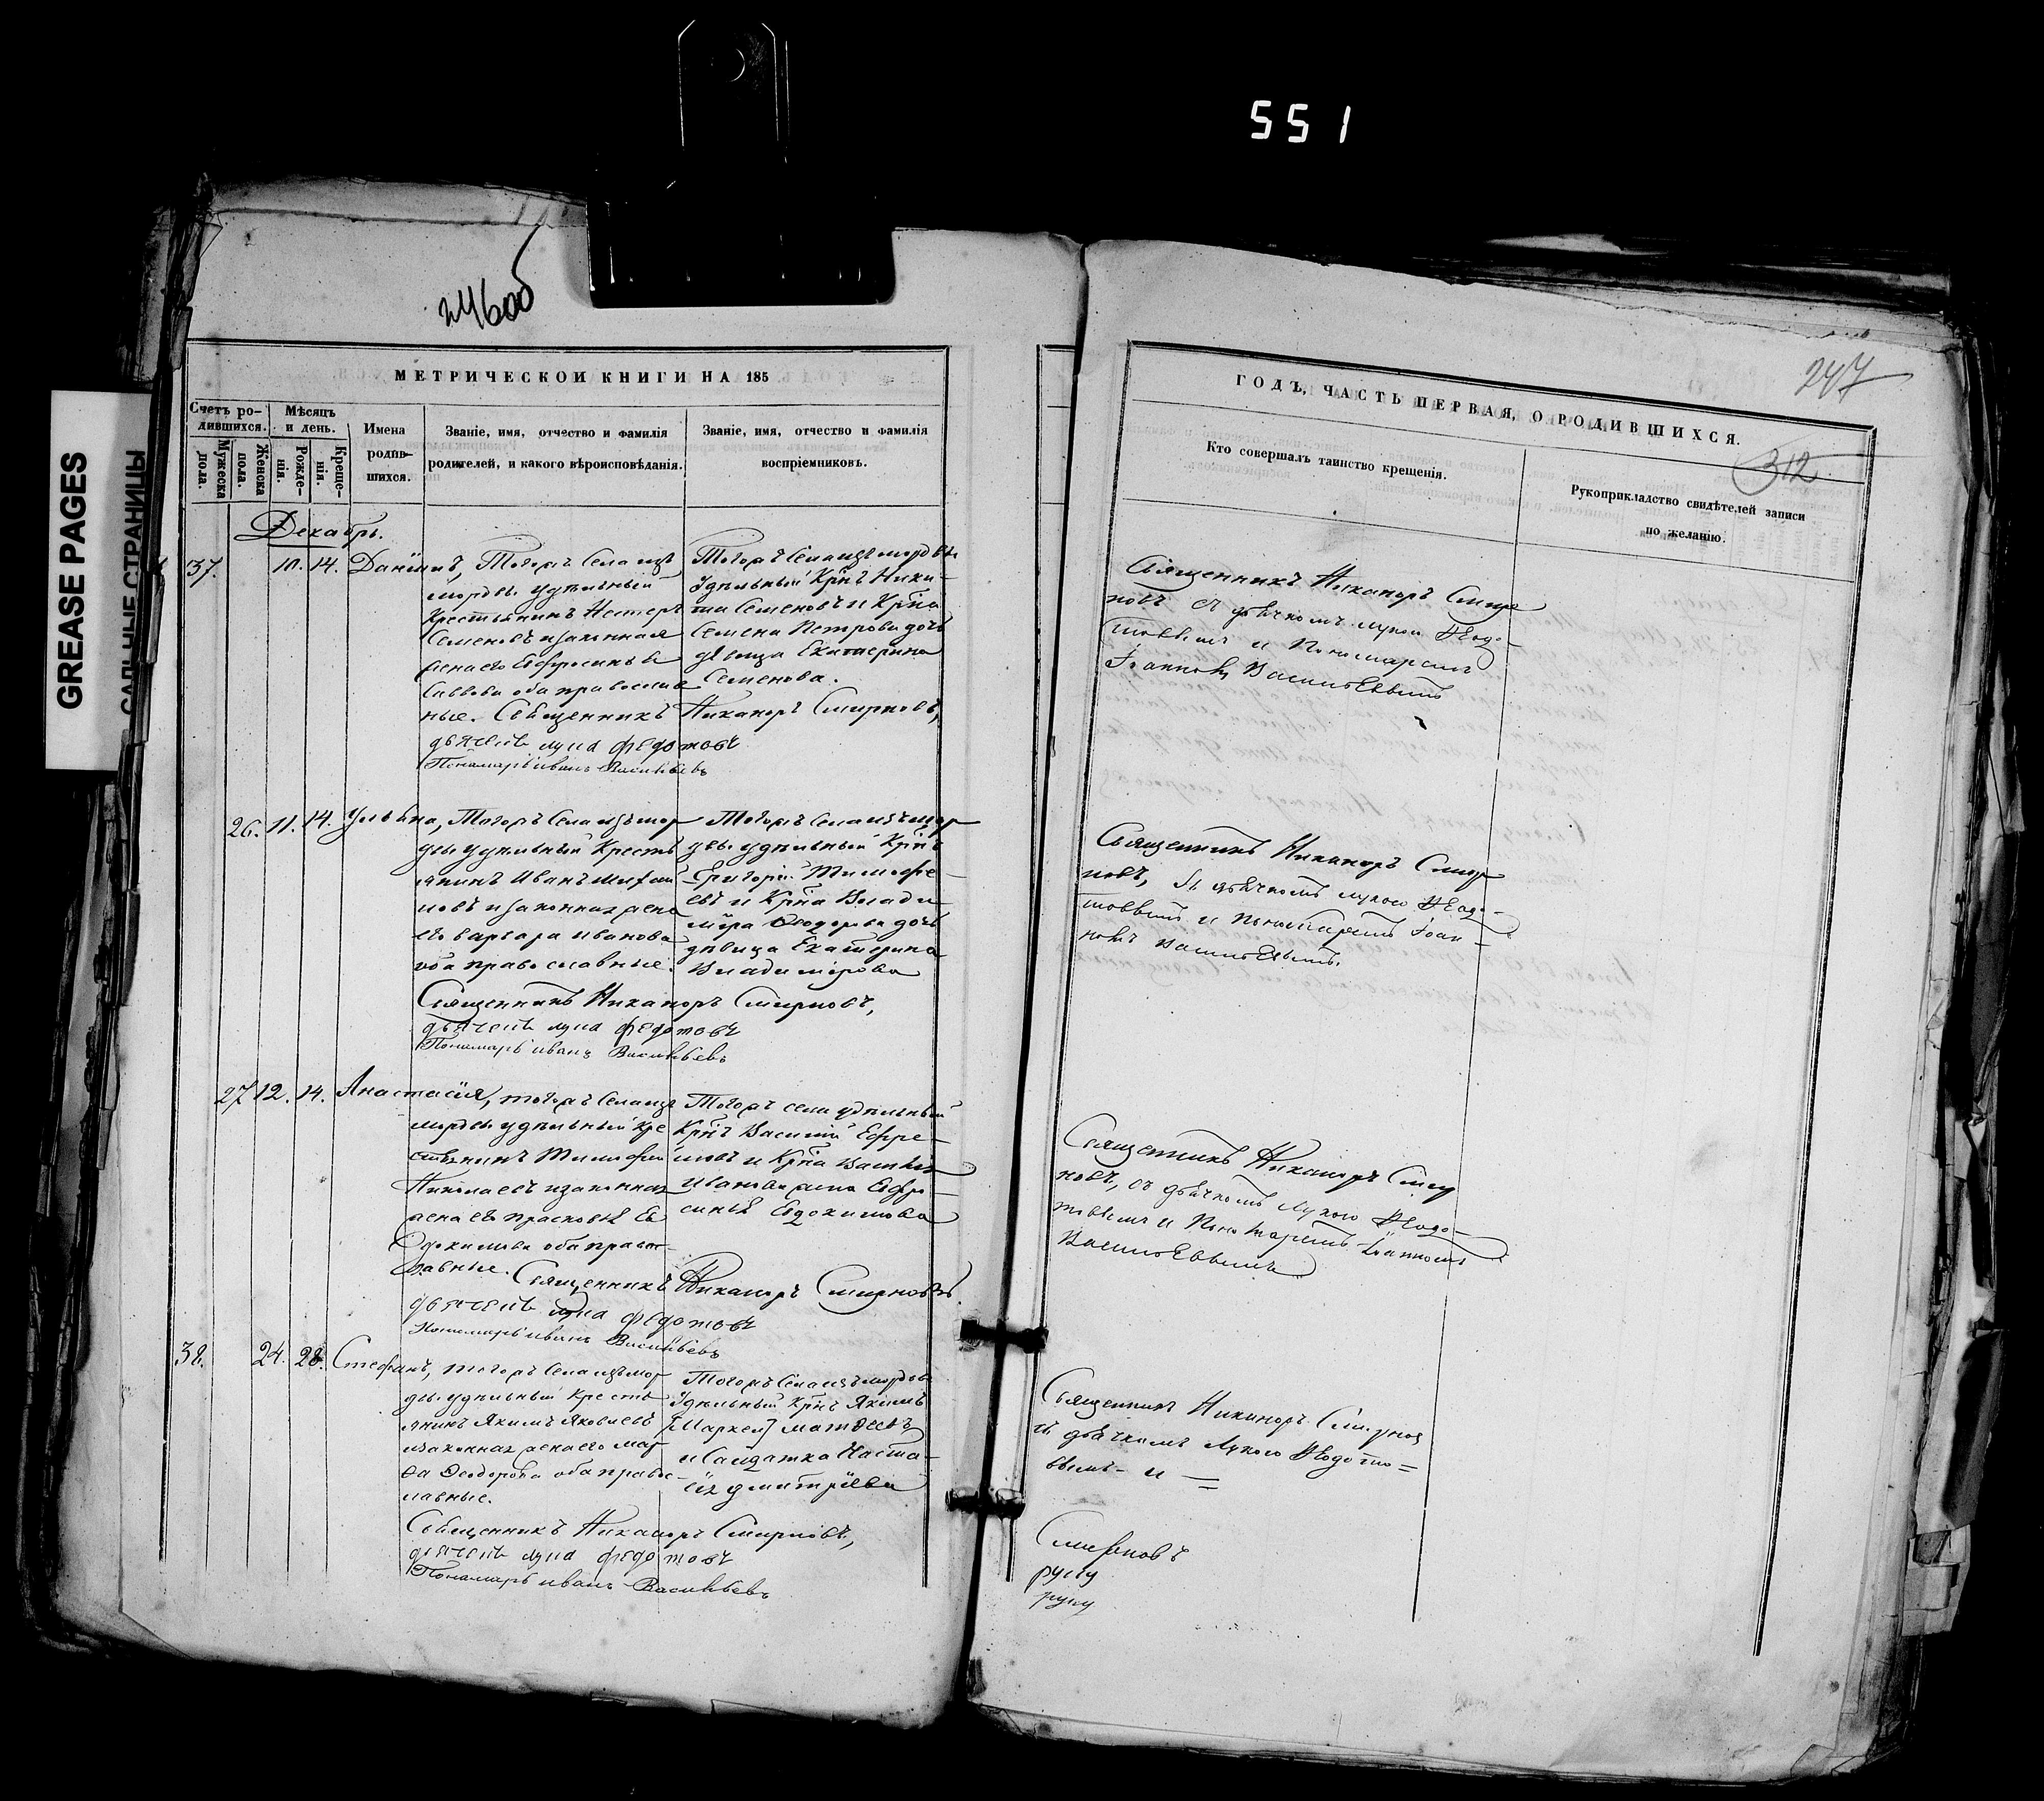 551
GREASE PAGES
САЛЬНЫЕ СТРАНИЦЫ
246об
МЕТРИЧЕСКОИ КНИГИ НА 185
Счетъ ро-
дившихся.
Мужеска
пола.
Женска
пола.
Мѣсяцъ
и день.
Рожде-
нія.
Креще-
нія.
Имена
родив-
шихся.
Званіе, имя, отчество и фамилія
родителей, и какого вѣроисповѣданія.
Званіе, имя, отчество и фамилія
воспріемниковъ.
Декабрь.
37. 10. 14. Даніилъ,
Тогожъ Села изъ
мордвы удѣльный
Крестьянинъ Нестеръ
Семеновъ и законная
жена его Ефросинья
Саввова оба православ
ные. Священникъ Никаноръ Смирновъ,
дьячекъ лука федотовъ
Пономарь иванъ Васильевъ
Тогожъ Села изъ мордвы
Удѣльный Крнъ Ники-
та Семеновъ и Крна
Семена Петрова дочь
дѣвица Екатерина
Семенова.
26. 11. 14. Ульяна,
Тогожъ Села изъ мор
двы удѣльный Кресть
янинъ Иванъ Михаи
ловъ и законная жена
его варвара иванова
оба православные.
Священникъ Никаноръ Смирновъ,
дьячекъ лука федотовъ
Пономарь иванъ Васильевъ
Тогожъ Села изъ мор
двы удѣльный Крнъ
Григорій Тимофе-
евъ и Крна Влади
міра Ѳеодорова дочь
дѣвица Екатерина
Владимірова
27 12. 14. Анастасія,
тогожъ Села изъ
мордвы удѣльный кре
стьянинъ Тимофей
Николаевъ и законная
жена его прасковья Ев
докимова оба правос-
лавные. Священникъ Никаноръ Смирновъ.
дьячекъ лука федотовъ
Пономарь иванъ Васильевъ
Тогожъ села удѣльный
Крнъ Василій Ефре-
мовъ и Крна Василья
Иванова жена Ефро-
синья Евдокимова
38. 24. 28. Стефанъ,
тогожъ Села изъ мор
двы удѣльный кресть
янинъ Якимъ Яковлевъ
и законная жена его мар
ѳа Ѳеодорова оба правос-
лавные.
Священникъ Никаноръ Смирновъ,
дьячекъ лука федотовъ
Пономарь иванъ Васильевъ
Тогожъ Села изъ мордвы
Удѣльный Крнъ Якимъ
[Маркел] матвеевъ
и Салдатка Наста-
сія дмитріева
247
312
ГОДЪ, ЧАСТЬ ПЕРВАЯ, О РОДИВШИХСЯ.
Кто совершалъ таинство крещенія.
Рукоприкладство свидѣтелей записи
по желанію.
Священникъ Никаноръ Смир
новъ съ дьячкомъ лукою Ѳедо-
товымъ и Пономаремъ
Іоанномъ Васильевымъ
Священникъ Никаноръ Смир
новъ, съ дьячкомъ лукою Ѳедо-
товымъ и Пономаремъ Іоан-
номъ Васильевымъ.
Священникъ Никаноръ Смир
новъ, съ дьячкомъ Лукою Ѳедо-
товымъ и Пономаремъ Іоанномъ
Васильевымъ
Священникъ Никаноръ Смирнов
съ дьячкомъ Лукою Ѳедото=
вымъ - и =
Смирновъ
руку
руку